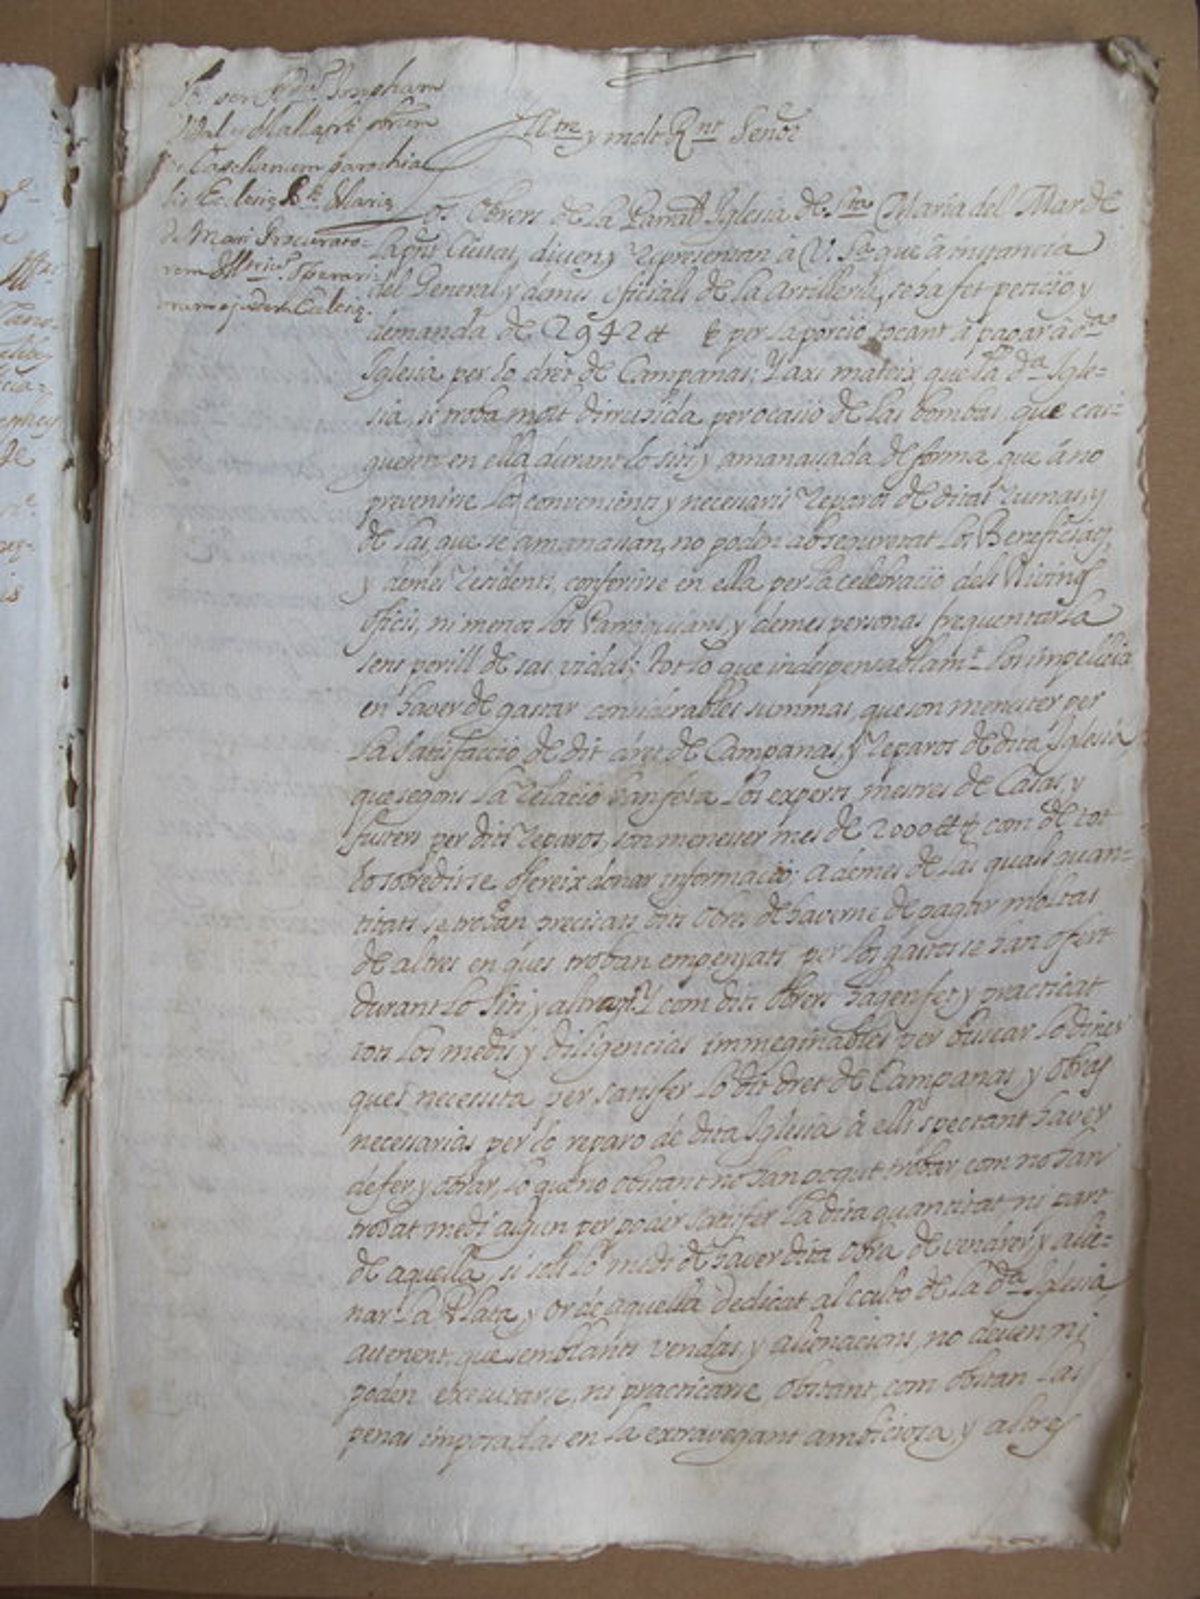 Iltre y molt Rnt Senor
Los Obrers de la Parral Iglesia de Sta Maria del Mar de
la pnt Ciutat, diuen y representan â V. Sa que â instancia
del General y demes oficials de la Artilleria, se ha fet peticio y
demanda de 2942 per la porcio tocant â pagar â da
Iglesia per lo dret de Campanas; Y axi mateix que la da Igle=
sia, se troba molt dirruhida per ocasio de las bombas, que cai=
gueren en ella durant lo siti y amanassada de forma, que â no
prevenirse los convenients y necessaris reparos de ditas ruinas, y
de las que se amanassan, no poden ab seguretat los Beneficiats,
y demes residents, conferirse en ella per la celebracio dels Divins
oficis, ni menos los Parroquians y demes personas frequentarla
sens perill de sas vidas; tot lo que indispensablamt los impelleix
en haver de gastar considerables summas, que son menester per
la satisfaccio de dit dret de Campanas, y reparos de dita Iglesia,
que segons la relacio han feta los experts mestres de Casas, y
fusters per dits reparos, son menester mes de 2000 com de tot
lo sobredit se ofereix donar informacio; ademes de las quals quan=
titats se troban precisats dits obrers de haverne de pagar moltas
de altres en ques troban empenyats per los gastos se han ofert
durant lo siti y altrament Y com dits Obrers hagen fet y practicat
tots los medis y diligencias immeginables per buscar lo diner
ques necessita per satisfer lo dit dret de Campanas y obras
necessarias per lo reparo de dita Iglesia â ells spectant haver
de fer, y obrar, lo que no obstant no han pogut trobar, com no han
trobat medi algun per poder satisfer la dita quantitat ni part
de aquella, si sols lo medi de haver dita Obra de vendrer, y alie=
nar la Plata, y or de aquella dedicat al culto de la da Iglesia
attenent, que semblants vendas, y alienacions, no deuen ni
poden executarse, ni practicarse, obstant, com obstan las
penas imposadas en la extravagant ambiciosa, y altres